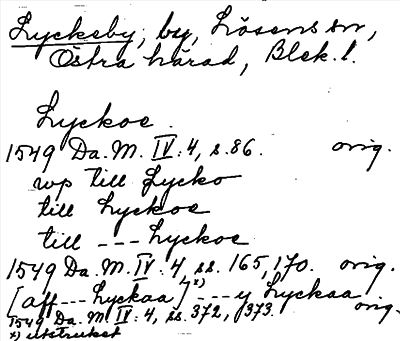 Lyckeby, by, Lösens sn,
Östra härad, Blek. l.
Lyckoe.
1549 Da. M. IV: 4, s. 86. orig.
wp till Lycko
till Lyckoe
till --- Lyckoe
1549 Da. M. IV: 4, ss. 165, 170. orig.
[aff --- Lyckaa]x) --- y Lyckaa
1549 Da. M. IV: 4, ss. 372, 373. orig.
x) utstruket